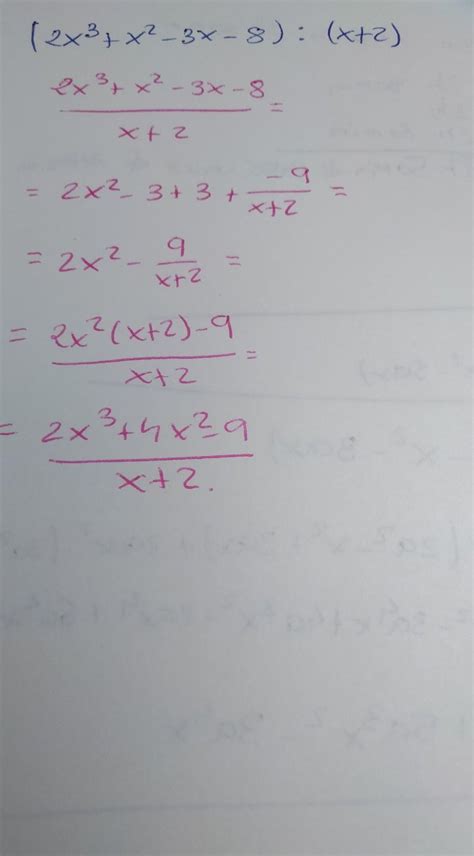 (2x³+x²-3x-8) : (x+2)
2x³+x²-3x-8 =
x+2
= 2x²-3+3+ -9/x+2 =
= 2x² - 9/x+2 =
= 2x²(x+2)-9 =
x+2
= 2x³+4x²-9
x+2.